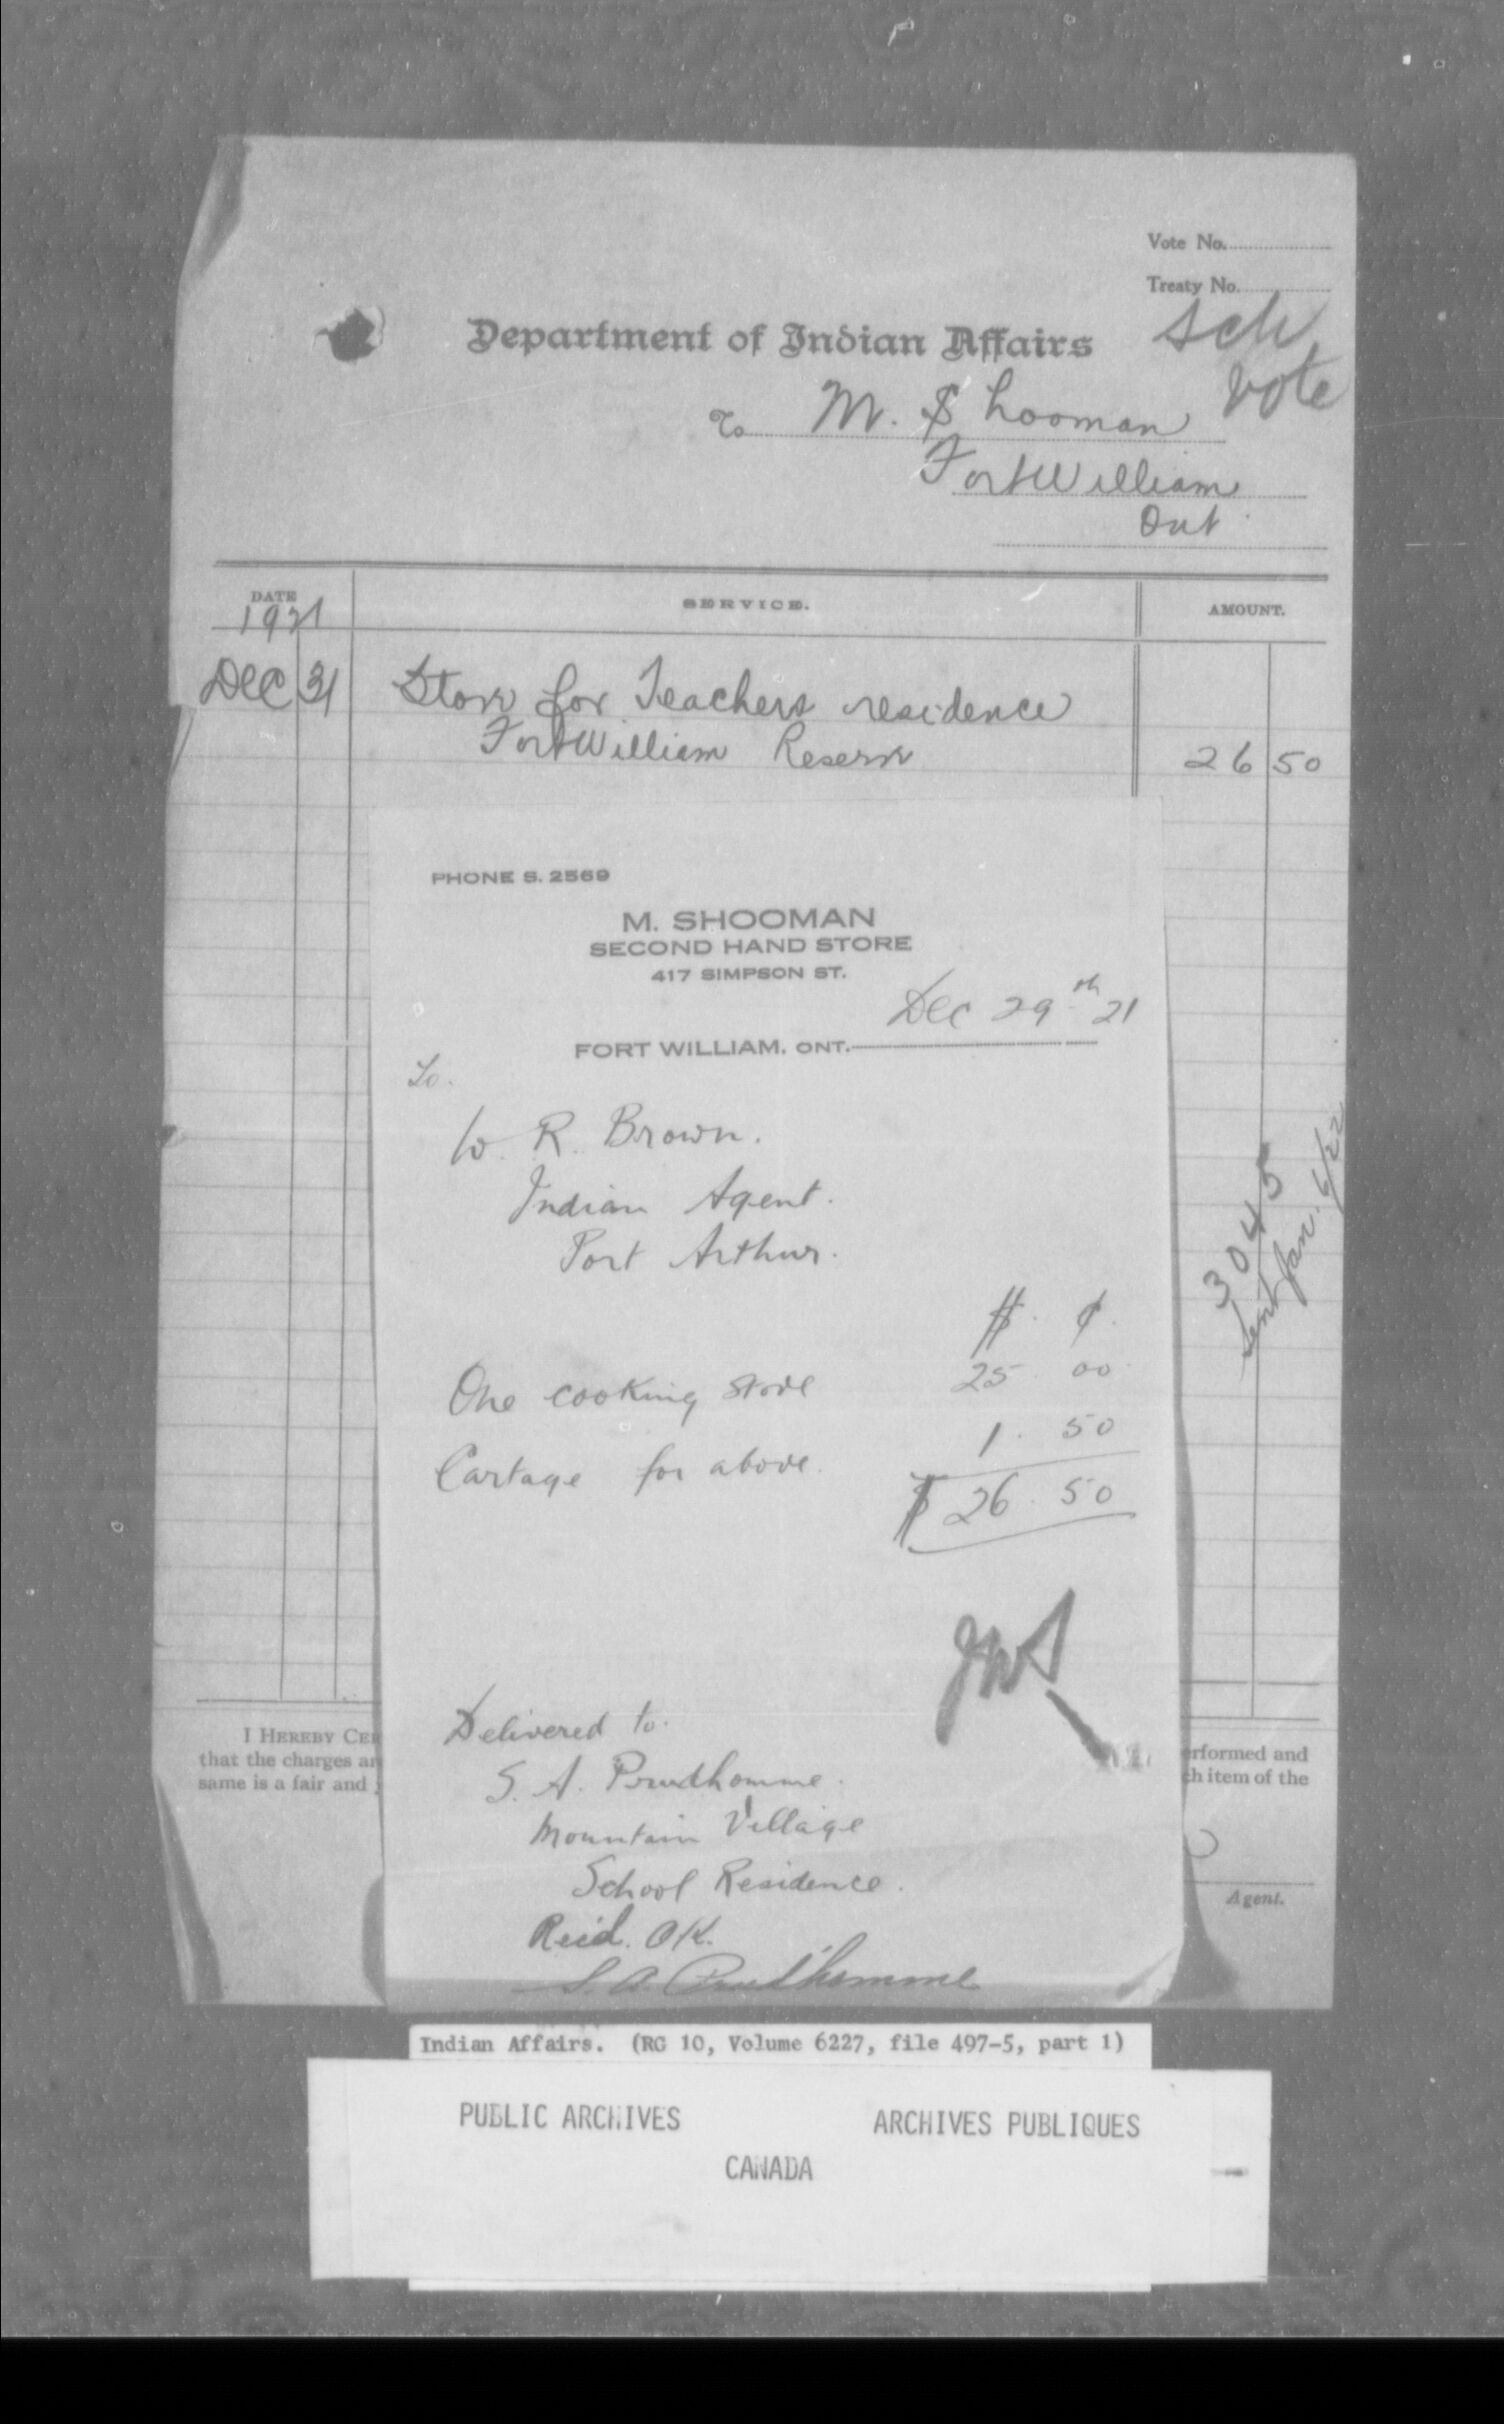 Vote No.
Treaty No.
Sch
vote
Department of Indian Affairs
To M. Shooman
Fort William
Ont
DATE SERVICE. AMOUNT.
1921
Dec 31 Stove for Teachers residence
Fort William Reserve 26 50
PHONE S. 2569
M. SHOOMAN
SECOND HAND STORE
417 SIMPSON ST.
Dec 29th 21
FORT WILLIAM, ONT.
To.
W. R. Brown.
Indian Agent.
Port Arthur.
$ ¢
One cooking stove 25 00
Cartage for above. 1. 50
$ 26. 50
3045
Sent Jan. 6/22
Delivered to.
S. A. Prudhomme.
Mountain Village
School Residence.
Recd. OK.
S. A. Prudhomme
I HEREBY CER
that the charges an
same is a fair and
erformed and
ch item of the
Agent.
Indian Affairs. (RG 10, Volume 6227, file 497-5, part 1)
PUBLIC ARCHIVES ARCHIVES PUBLIQUES
CANADA